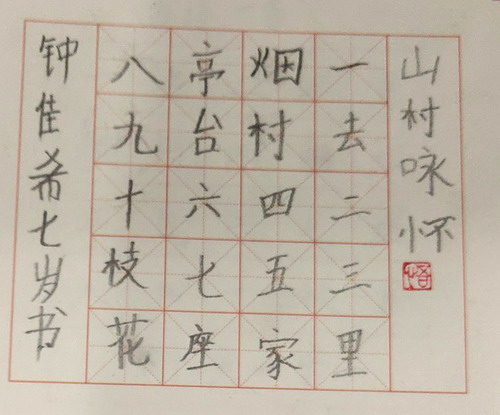 山村咏怀
悟
一去二三里
烟村四五家
亭台六七座
八九十枝花
钟佳希七岁书